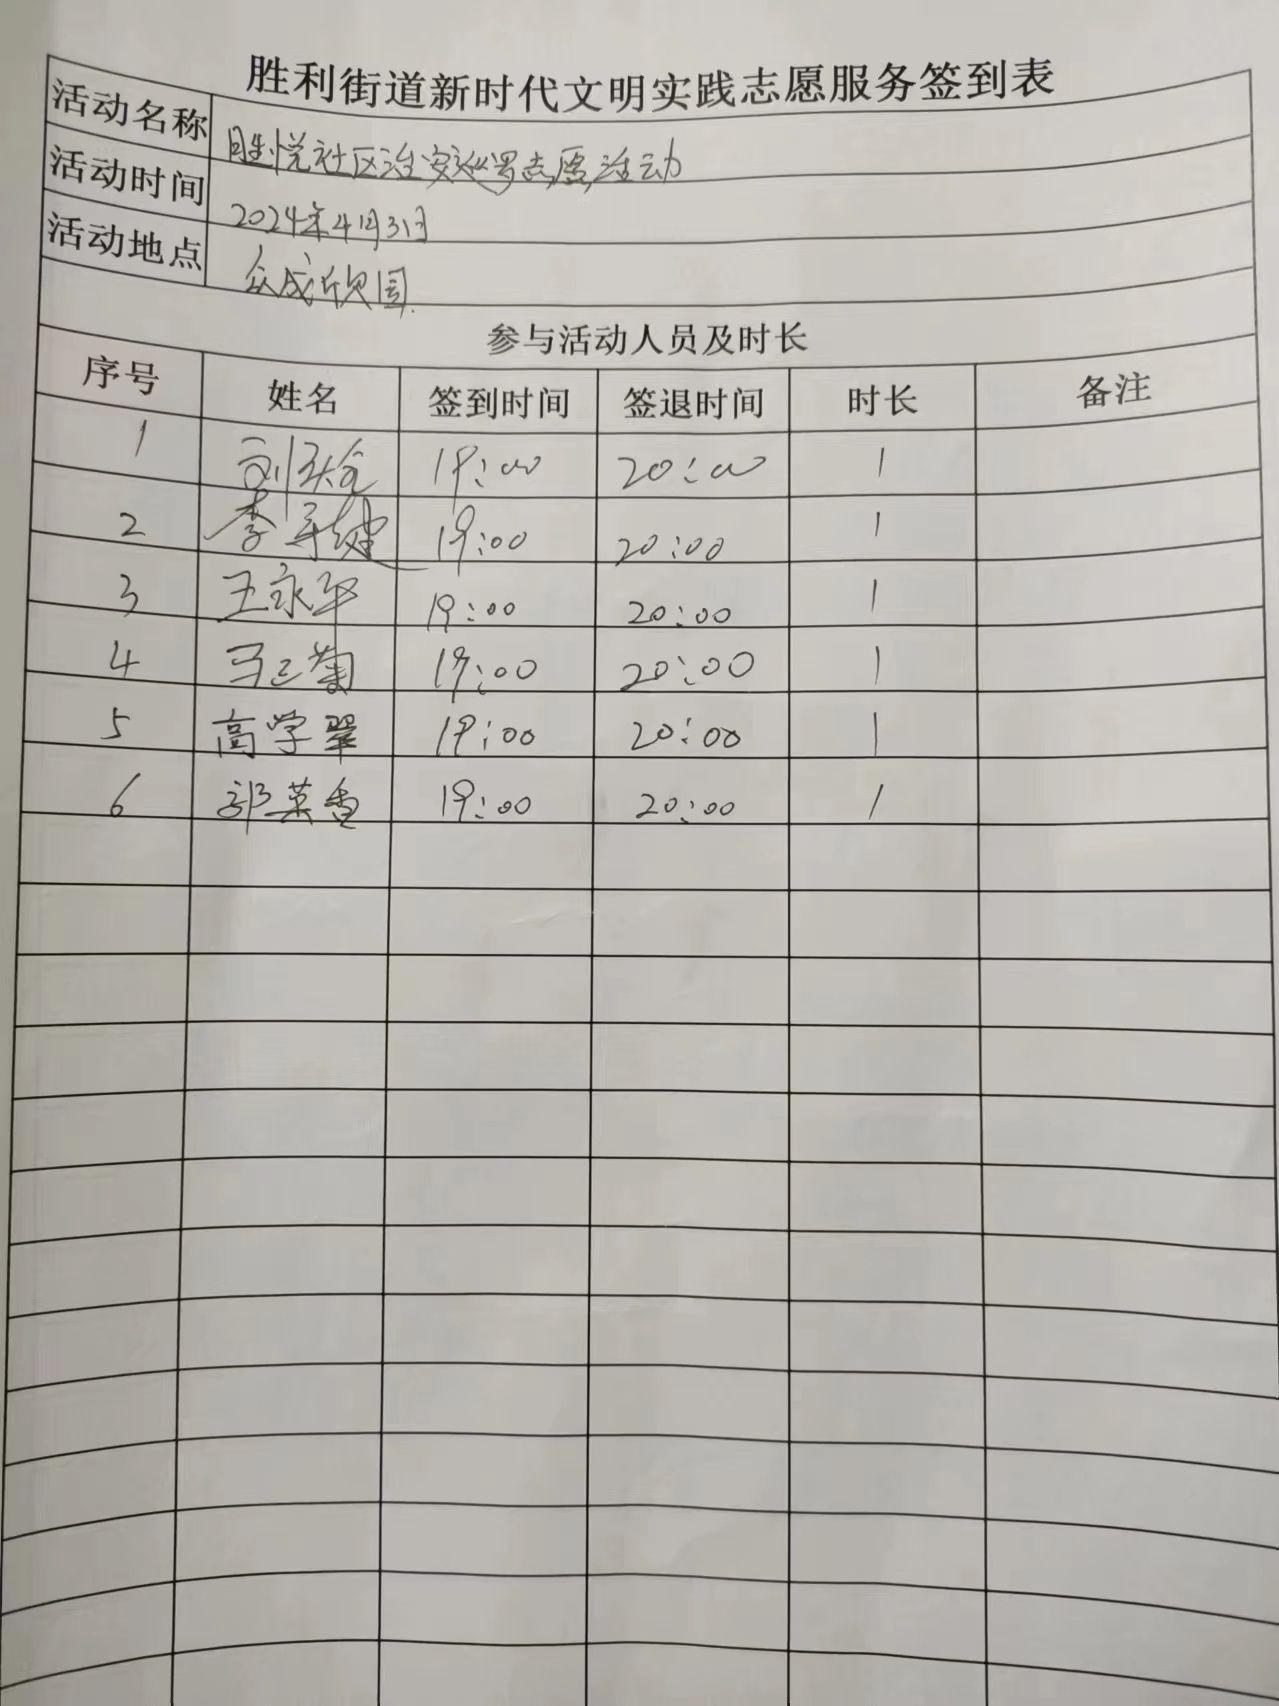 胜利街道新时代文明实践志愿服务签到表
活动名称 胜悦社区治安巡逻志愿活动
活动时间 2024年4月3日
活动地点 众成欣园
参与活动人员及时长
序号 姓名 签到时间 签退时间 时长 备注
1 刘 19:00 20:00 1
2 李 19:00 20:00 1
3 王永平 19:00 20:00 1
4 马菊 19:00 20:00 1
5 高学翠 19:00 20:00 1
6 郭英香 19:00 20:00 1